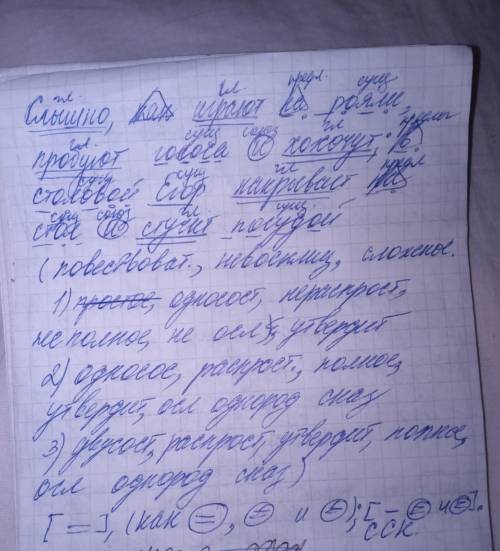 гл. гл предл. сущ
Слышно, как играют на рояли,
гл. сущ союз гл предлог
пробуют голоса и хохочут; в
сущ сущ гл предл
столовой Егор накрывает на
сущ союз гл сущ.
стол и стучит посудой
(повествоват., невосклиц, сложное.
1) простое, односост, нераспрост,
неполное, не осл, утвердит
2) односос, распрост., полное,
утвердит, осл однород сказ
3) двусост, распрост, утвердит, полное,
осл однород сказ)
[=], (как =, = и =); [- = и =].
ССК